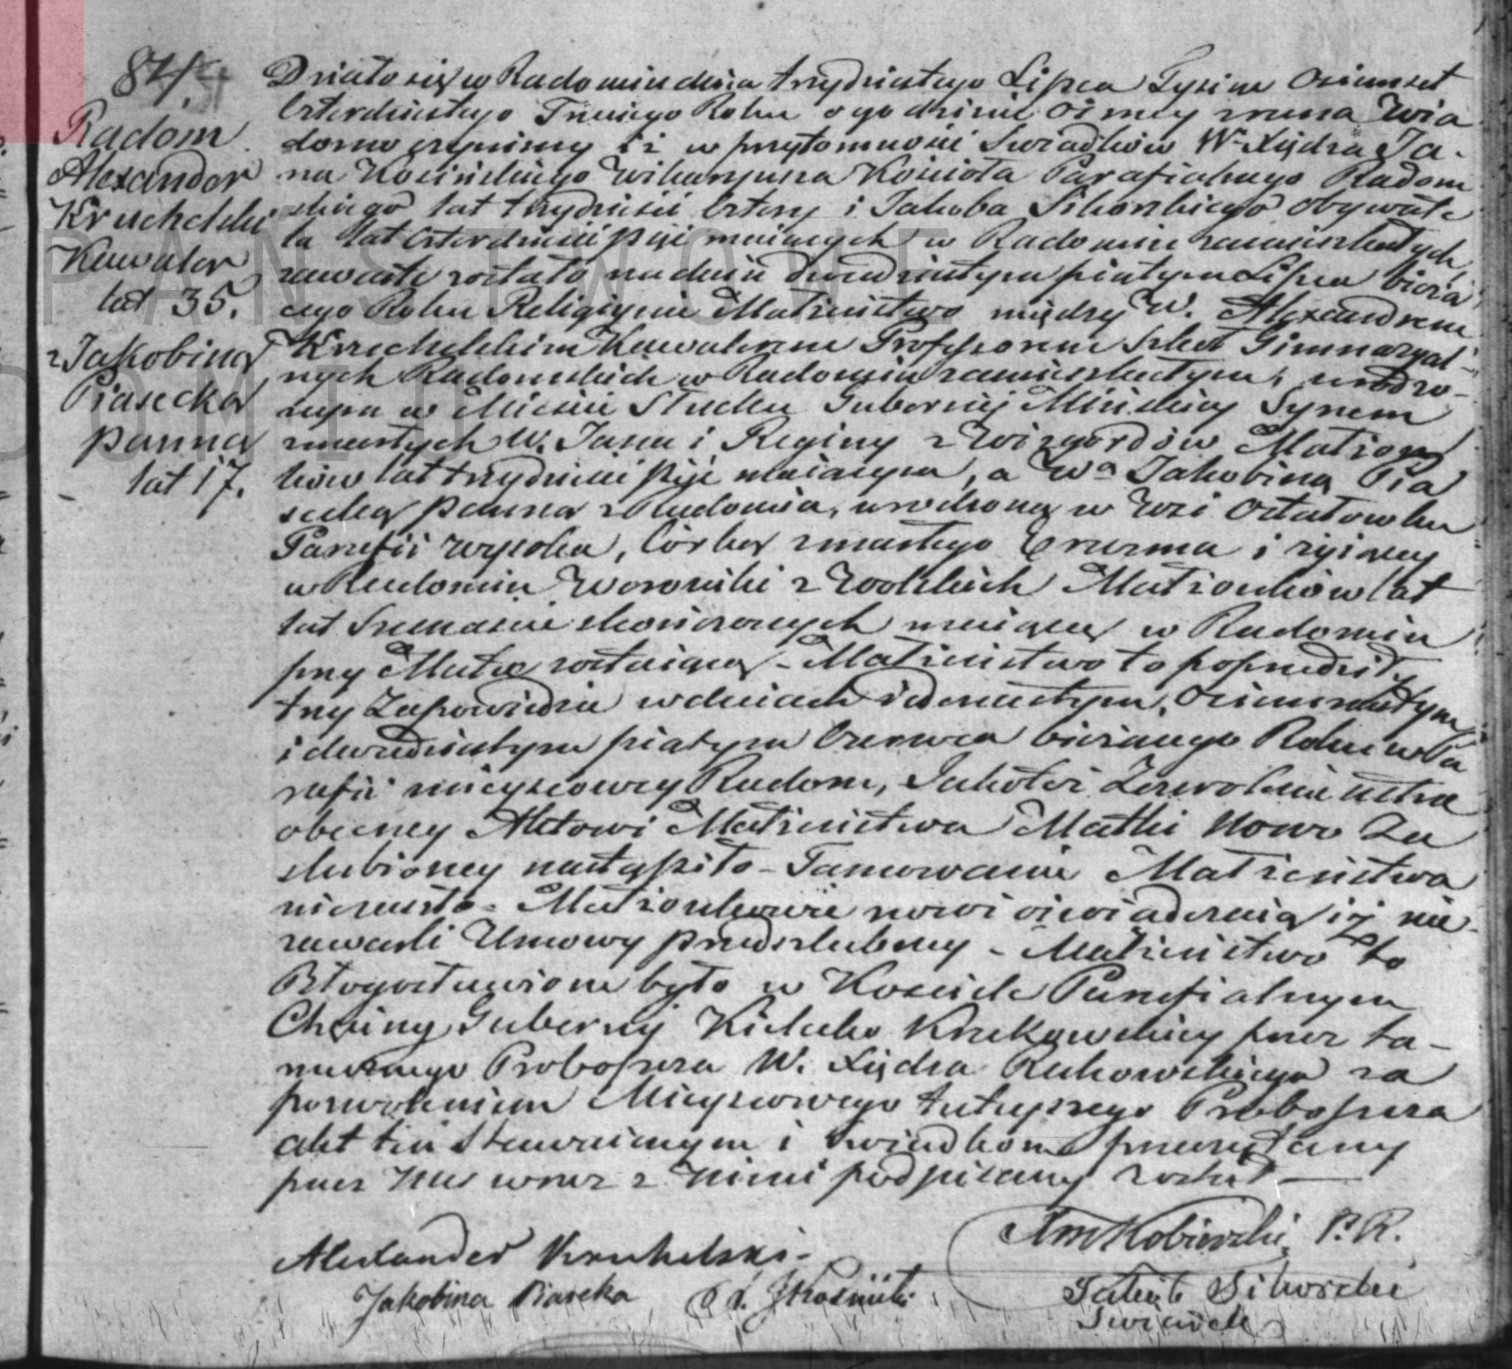 84.
Radom
Alexander
Kruchelski
Kawaler
lat 35.
z Jakobiną
Piasecką
panną
lat 17.
Działo się w Radomiu dnia trzydziestego Lipca Tysiąc Osiemset
Czterdziestego Trzeciego Roku o godzinie ósmey zrana Wia
domo czynimy iż w przytomności Świadków W Xiędza Ja-
na Kosińskiego Wikaryusza Kościoła Parafialnego Radom
skiego lat trzydzieści cztery i Jakoba Sikorskiego obywate
la lat czterdzieści pięć maiących w Radomiu zamieszkałych
zawarte zostało na dniu dwudziestym piątym Lipca bieżą
cego Roku Religijnie Małżeństwo między W. Alexandrem
Kruchelskim Kawalerem Professorem Szkół Gimnazyal-
nych Radomskich w Radomiu zamieszkałym, urodzo-
nym w Mieście Słucku Gubernij Mińskiey Synem
zmarłych W. Jana i Reginy z Małżon
ków lat trzydzieści pięć maiącym, a Wą Jakobiną Pia
secką panną z Radomia, urodzoną w Wsi Ostałowku
Parafii Wysoka, Córką zmarłego Erazma i żyiącey
w Radomiu Weroniki z Małżonków lat
lat Siedmnaście skończonych maiącą w Radomiu
przy Matce zostaiącą - Małżeństwo to poprzedziły
trzy Zapowiedzie w dniach iedenastym, Osiemnastym
i dwudziestym piątym Czerwca bieżącego Roku w Pa
rafii mieyscowey Radom, Jakoteż Zezwolenie ustne
obecney Aktowi Małżeństwa Matki Nowo Za
ślubioney nastąpiło - Tamowanie Małżeństwa
nie zaszło - Małżonkowie nowi oświadczaią iż nie
zawarli Umowy przedślubney - Małżeństwo to
Błogosławione było w Kościele Parafialnym
Chęciny Guberny Kielecko Krakowskiey przez ta-
mecznego Proboszcza W. Xiędza Rakowskiego za
pozwoleniem Mieyscowego tuteyszego Proboszcza
akt ten Stawaiącym i Świadkom przeczytany
przez Nas wraz z Niemi podpisany został
Alexander Kruchelski
Jakobina Piasecka
X. J. Kosiński
Kobierski P. R.
Jakub Sikorski
Świadek